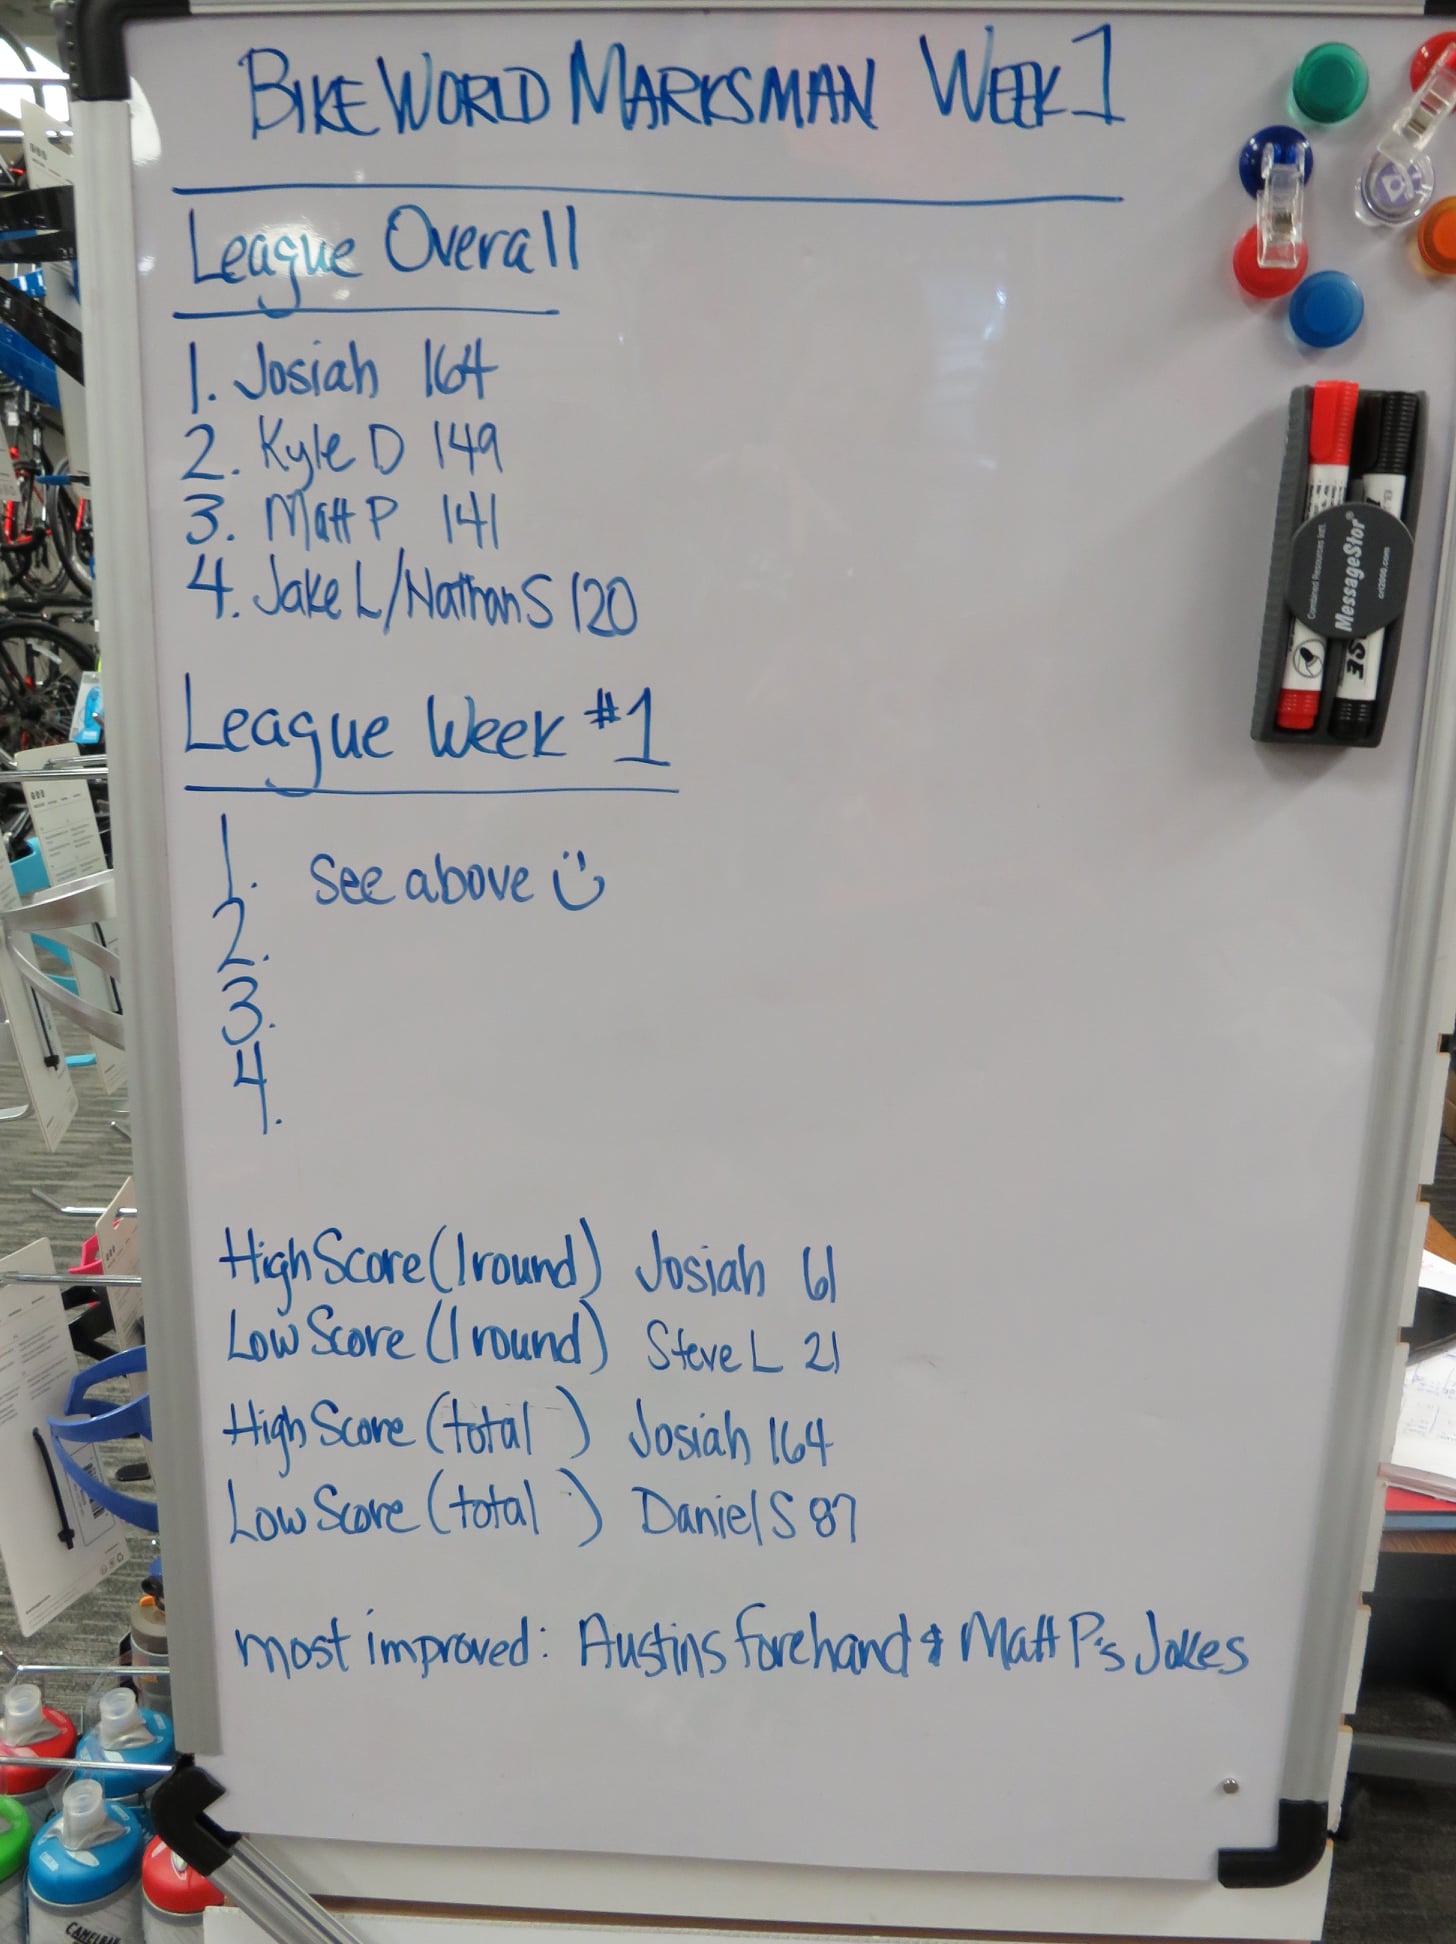 BIKE WORLD MARKSMAN WEEK 1
League Overall
1. Josiah 164
2. Kyle D 149
3. Matt P 141
4. Jake L/Nathan S 120
League Week #1
1. See above
2.
3.
4.
High Score (1 round) Josiah 61
Low Score (1 round) Steve L 21
High Score (total ) Josiah 164
Low Score (total ) Daniel S 87
most improved: Austins forehand & Matt P's Jokes
MessageStor®
Combined Resources Int.
cri2000.com
CAMELBAK